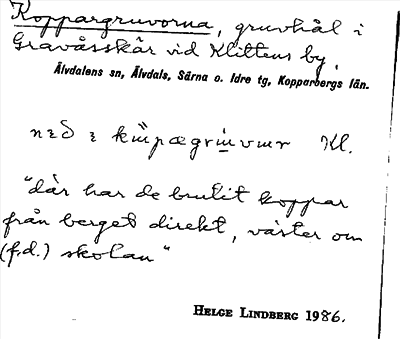 Koppargruvorna, gruvhål i
Gravåsskär vid Klittens by,
Älvdalens sn, Älvdals, Särna o. Idre tg, Kopparbergs län.
Kl.
"där har de brutit koppar
från berget direkt, väster om
(f.d.) skolan"
HELGE LINDBERG 1986.